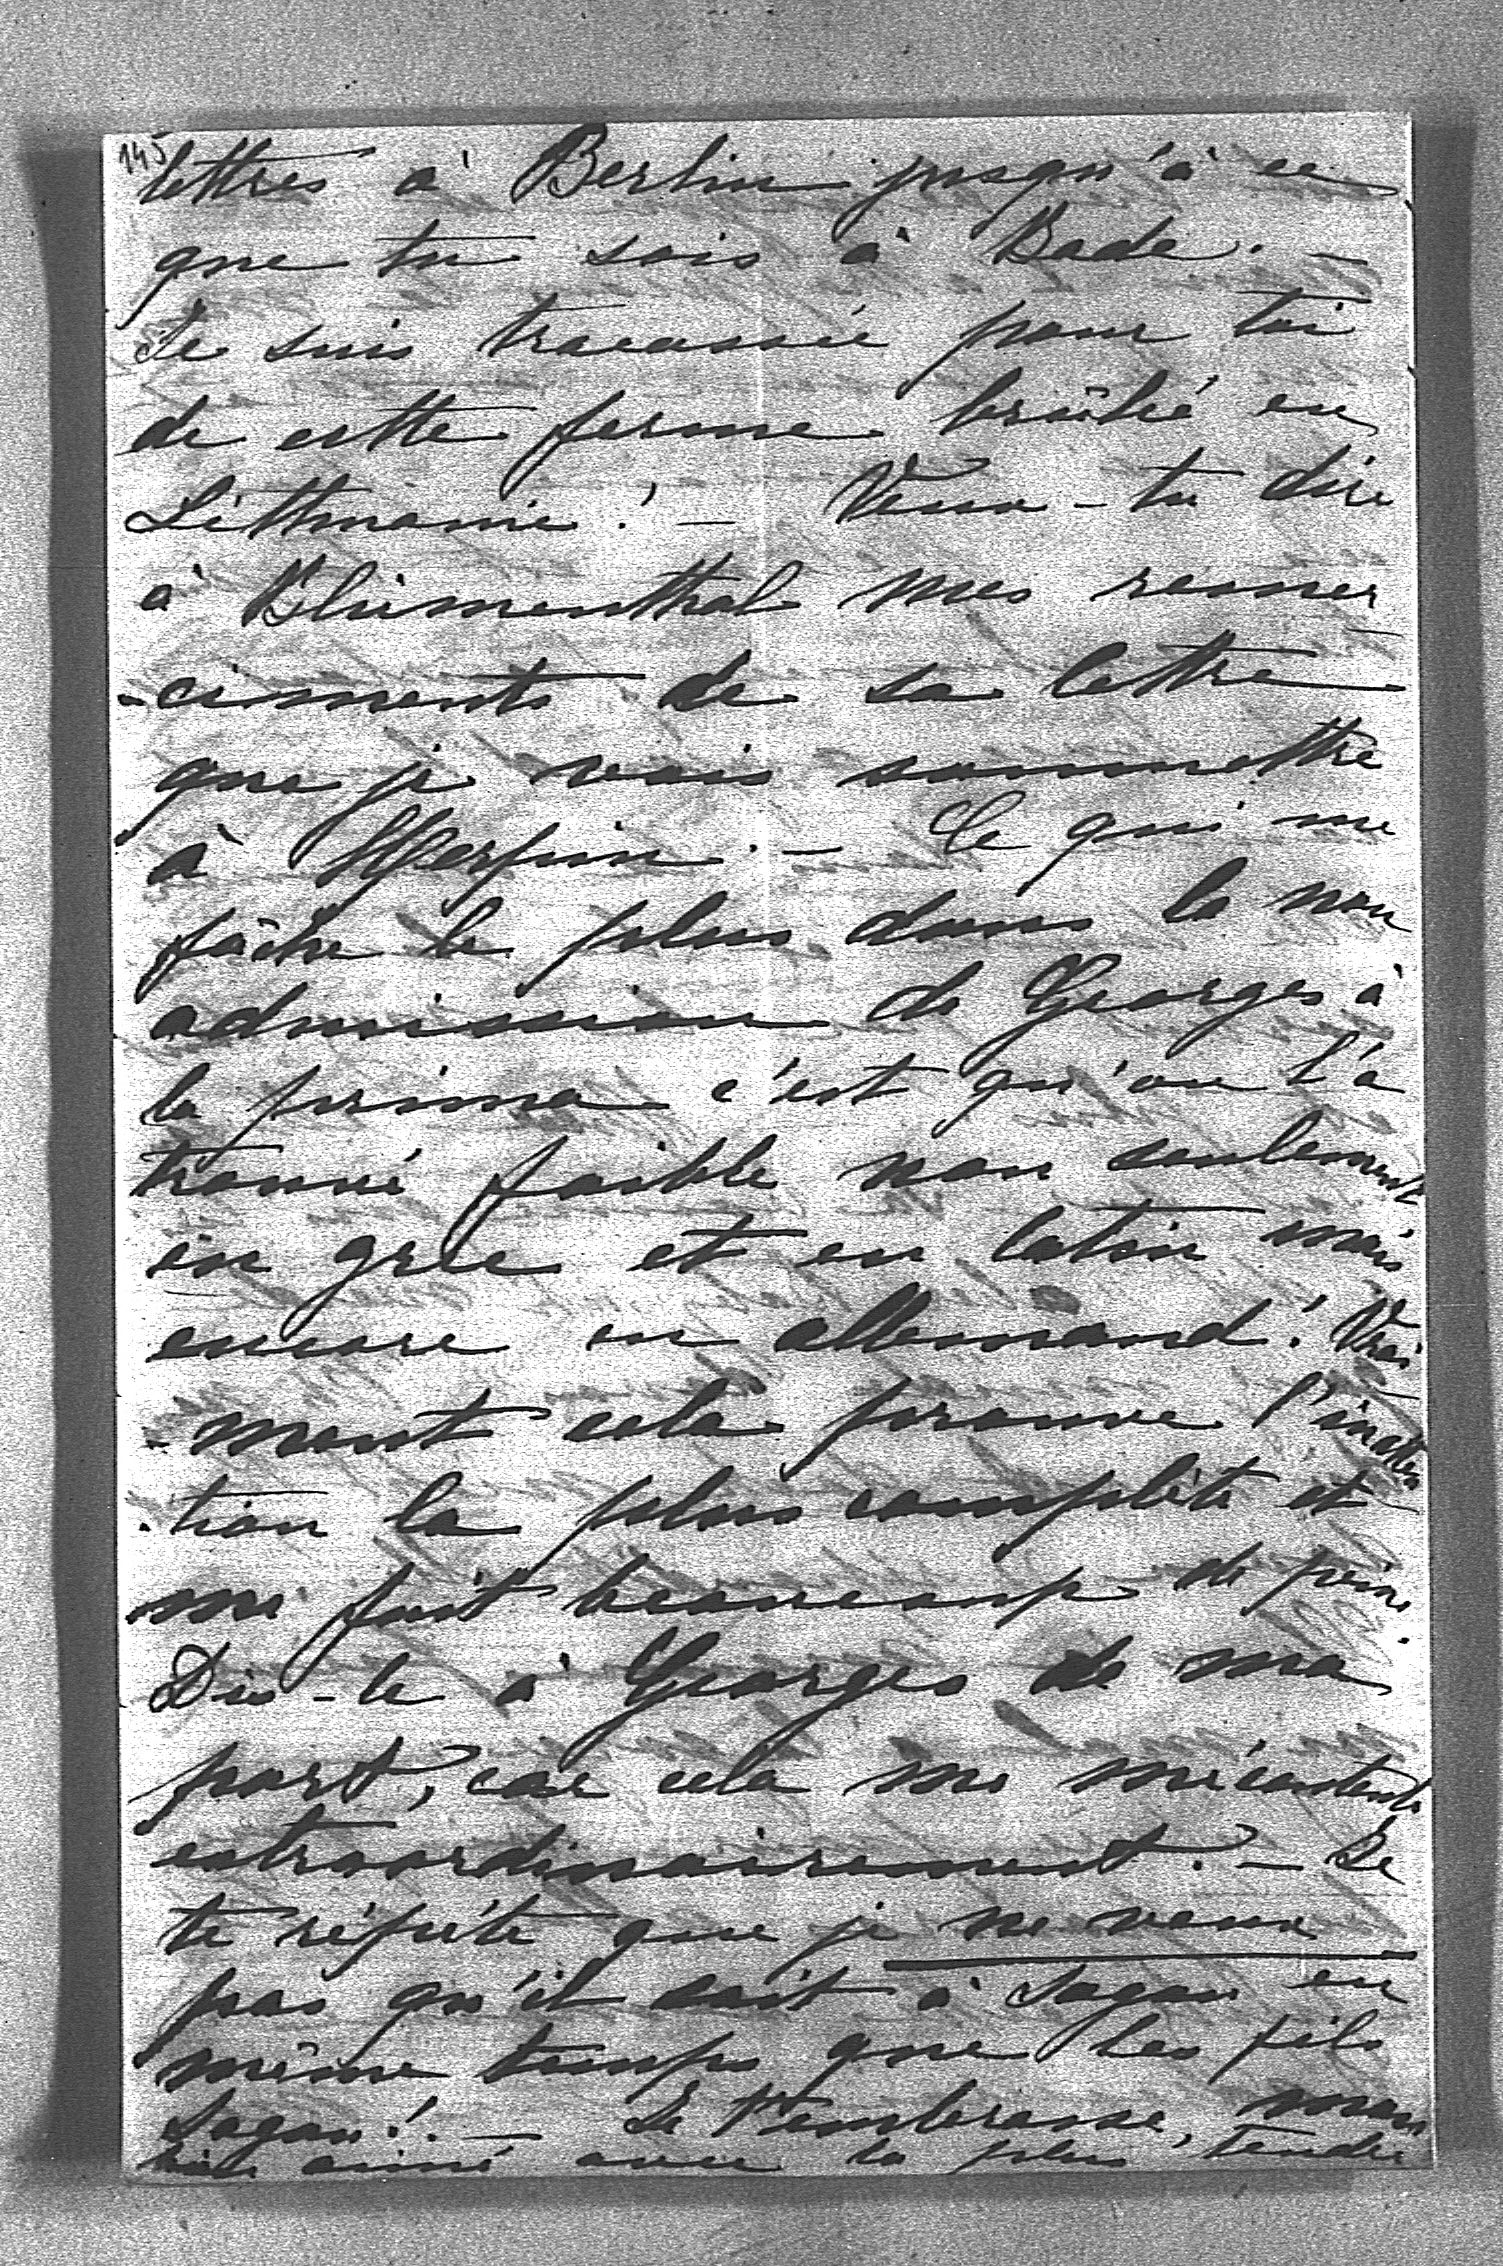 145
lettres à Berlin jusqu'à ce
que tu sois à Bade. –
Je suis tracassée pour toi
de cette ferme brûlé en
Litthuanie! – Veux-tu dire
à Blumenthal mes remer
-ciments de sa lettre
que je vais soumettre
à – Ce qui me
fâche le plus dans la non
admission de Georges à
la prima c'est qu'on l'a
trouvé faible non seulement
en grec et en latin mais
encore en allemand! Vrai
-ment cela prouve l'inatten
-tion la plus complète et
me fait beaucoup de peine.
Dis-le à Georges de ma
part, car cela me mécontente
extraordinairement. – Je
te répète que je ne veux
pas qu'il soit à Sagan en
même temps que les fils
Sagan! – Je t'embrasse, mon
bien aimé avec la plus tendre